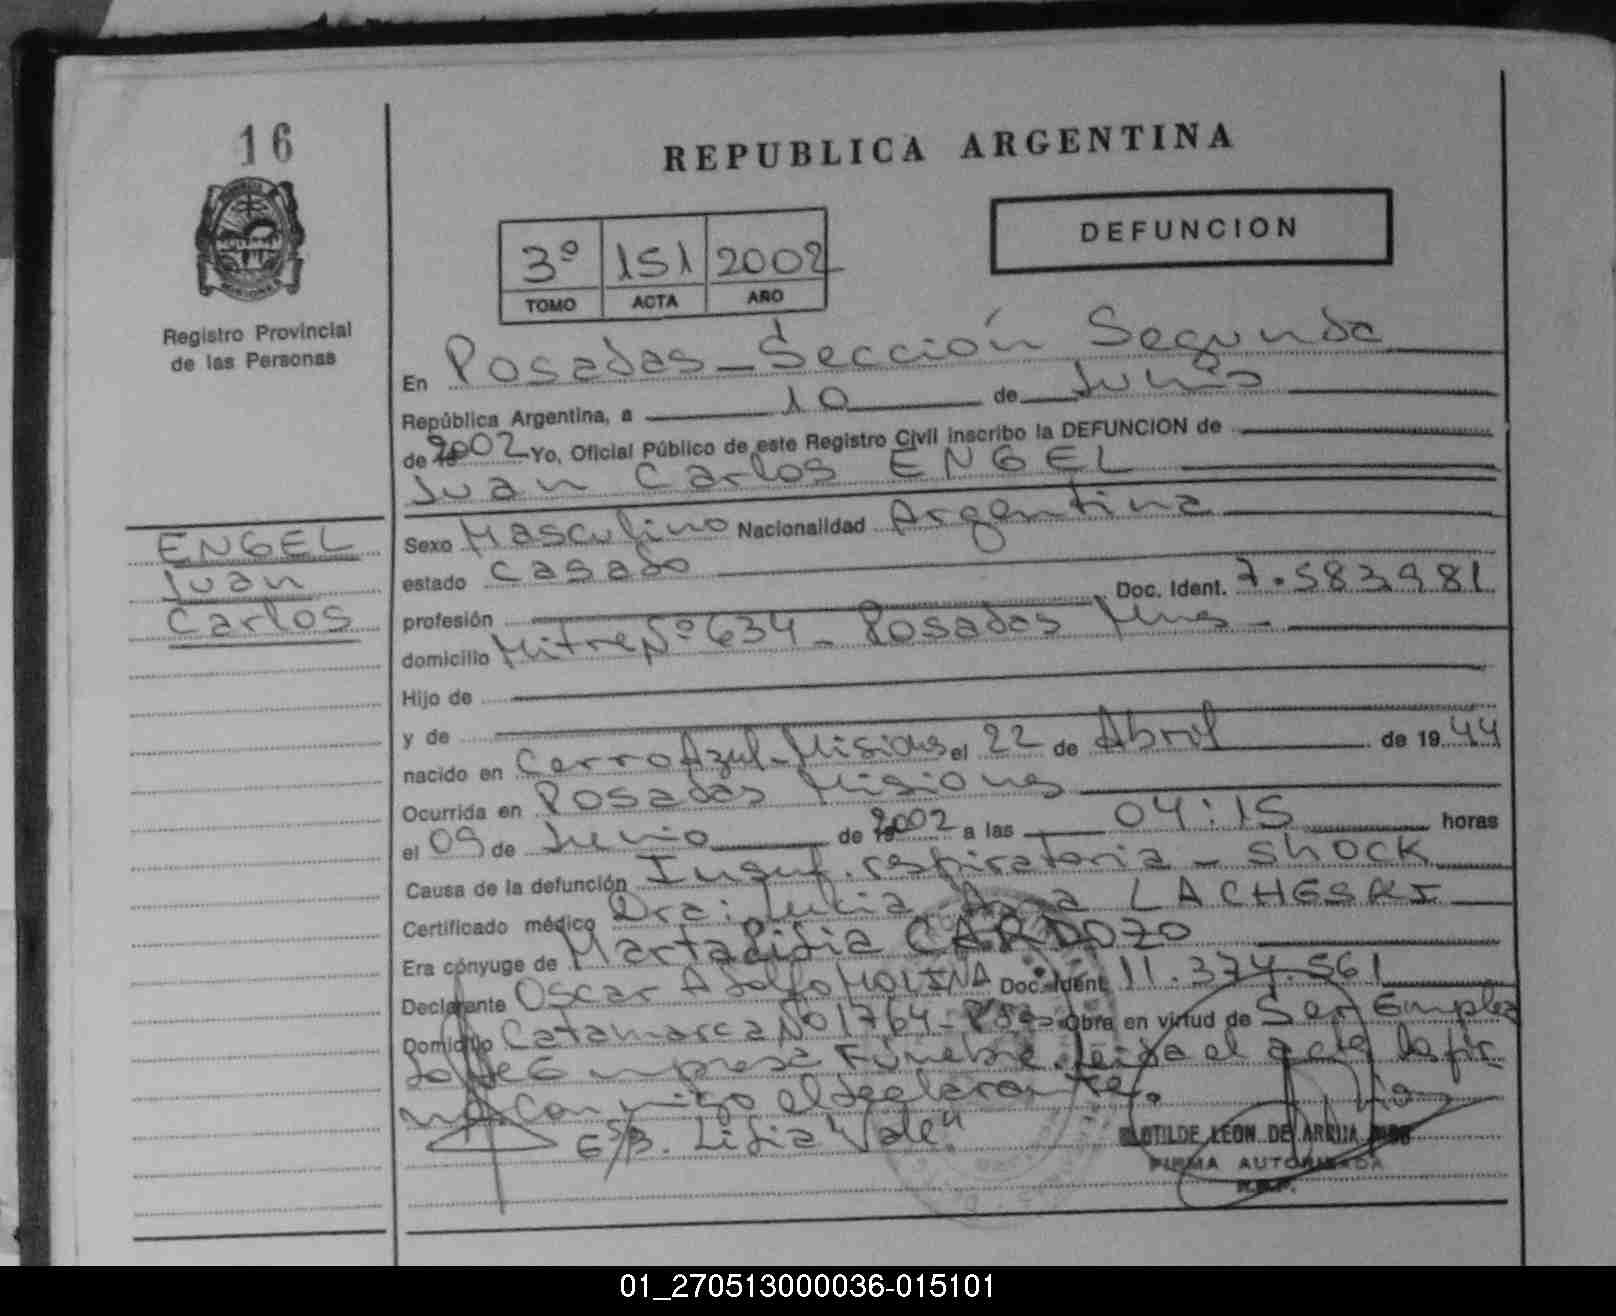 16
REPUBLICA ARGENTINA
DEFUNCION
3º 151 2002
TOMO ACTA AÑO
Registro Provincial
de las Personas
En Posadas - Sección Segunda
República Argentina, a 10 de Junio
de 2002 Yo, Oficial Público de este Registro Civil inscribo la DEFUNCION de
Juan Carlos ENGEL
ENGEL
Juan
Carlos
Sexo Masculino Nacionalidad Argentina
estado casado
profesión Doc. Ident. 7.583.981
domicilio Mitre Nº 634 - Posadas Mnes -
Hijo de
y de
nacido en Cerro Azul - Misiones el 22 de Abril de 1944
Ocurrida en Posadas Misiones
el 09 de Junio de 2002 a las 04:15 horas
Causa de la defunción Insuf. respiratoria - shock
Certificado médico Dra: Ana
Era cónyuge de Marta Lidia CARDOZO
Declarante Oscar Adolfo MOLINA Doc. Ident. 11.374.561
Domicilio Catamarca Nº 1764 - Pdas Obra en virtud de Ser Emplea
do de Empresa Fúnebre. Leida el acta la fir
ma conmigo el declarante.
E/B. Lidia "Vale"
CLOTILDE LEON DE
FIRMA AUTORIZADA
01_270513000036-015101